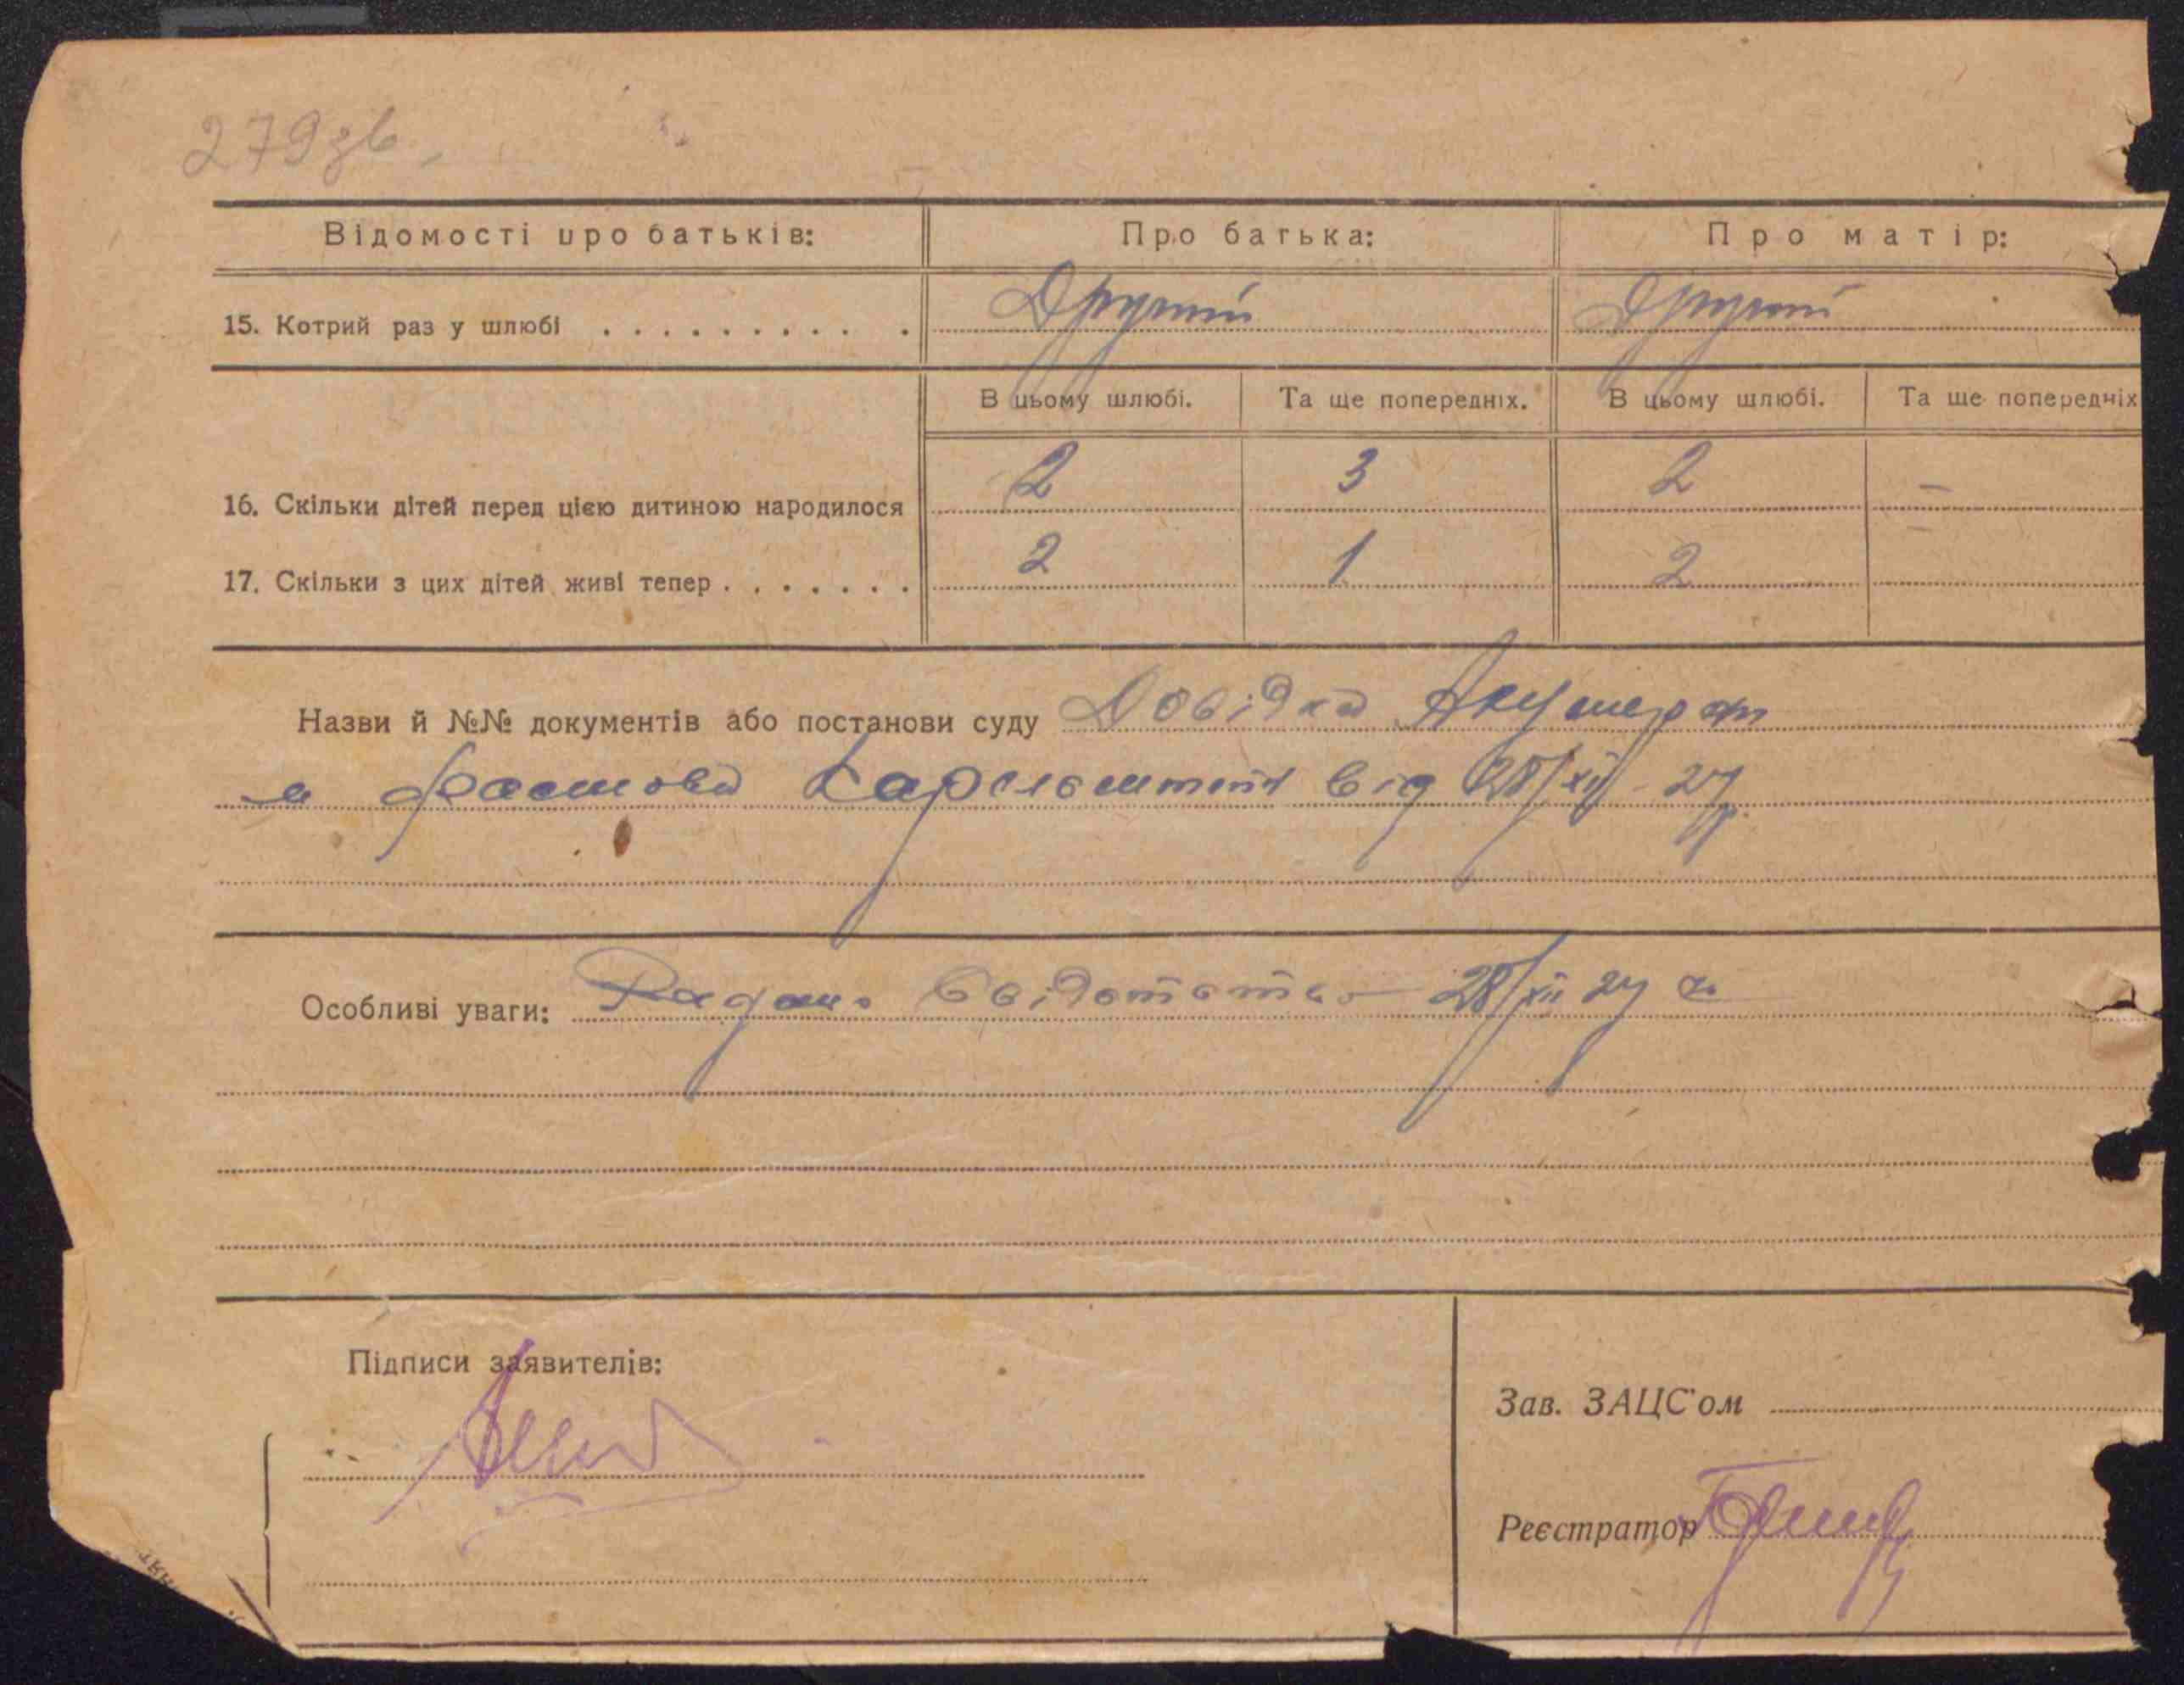 279зв.
Відомості про батьків: Про батька: Про матір:
15. Котрий раз у шлюбі . . . . . . . . . . Другий Другий
В цьому шлюбі. Та ще попередніх. В цьому шлюбі. Та ще попередніх
16. Скільки дітей перед цією дитиною народилося 2 3 2 –
17. Скільки з цих дітей живі тепер . . . . . . . 2 1 2 –
Назви й №№ документів або постанови суду Довідка Акушерки
м Фастова від 28/XII – 27р.
Особливі уваги: Видано Свідотство 28/XII 27 р
Підписи заявителів:
Зав. ЗАЦС'ом
Реєстратор